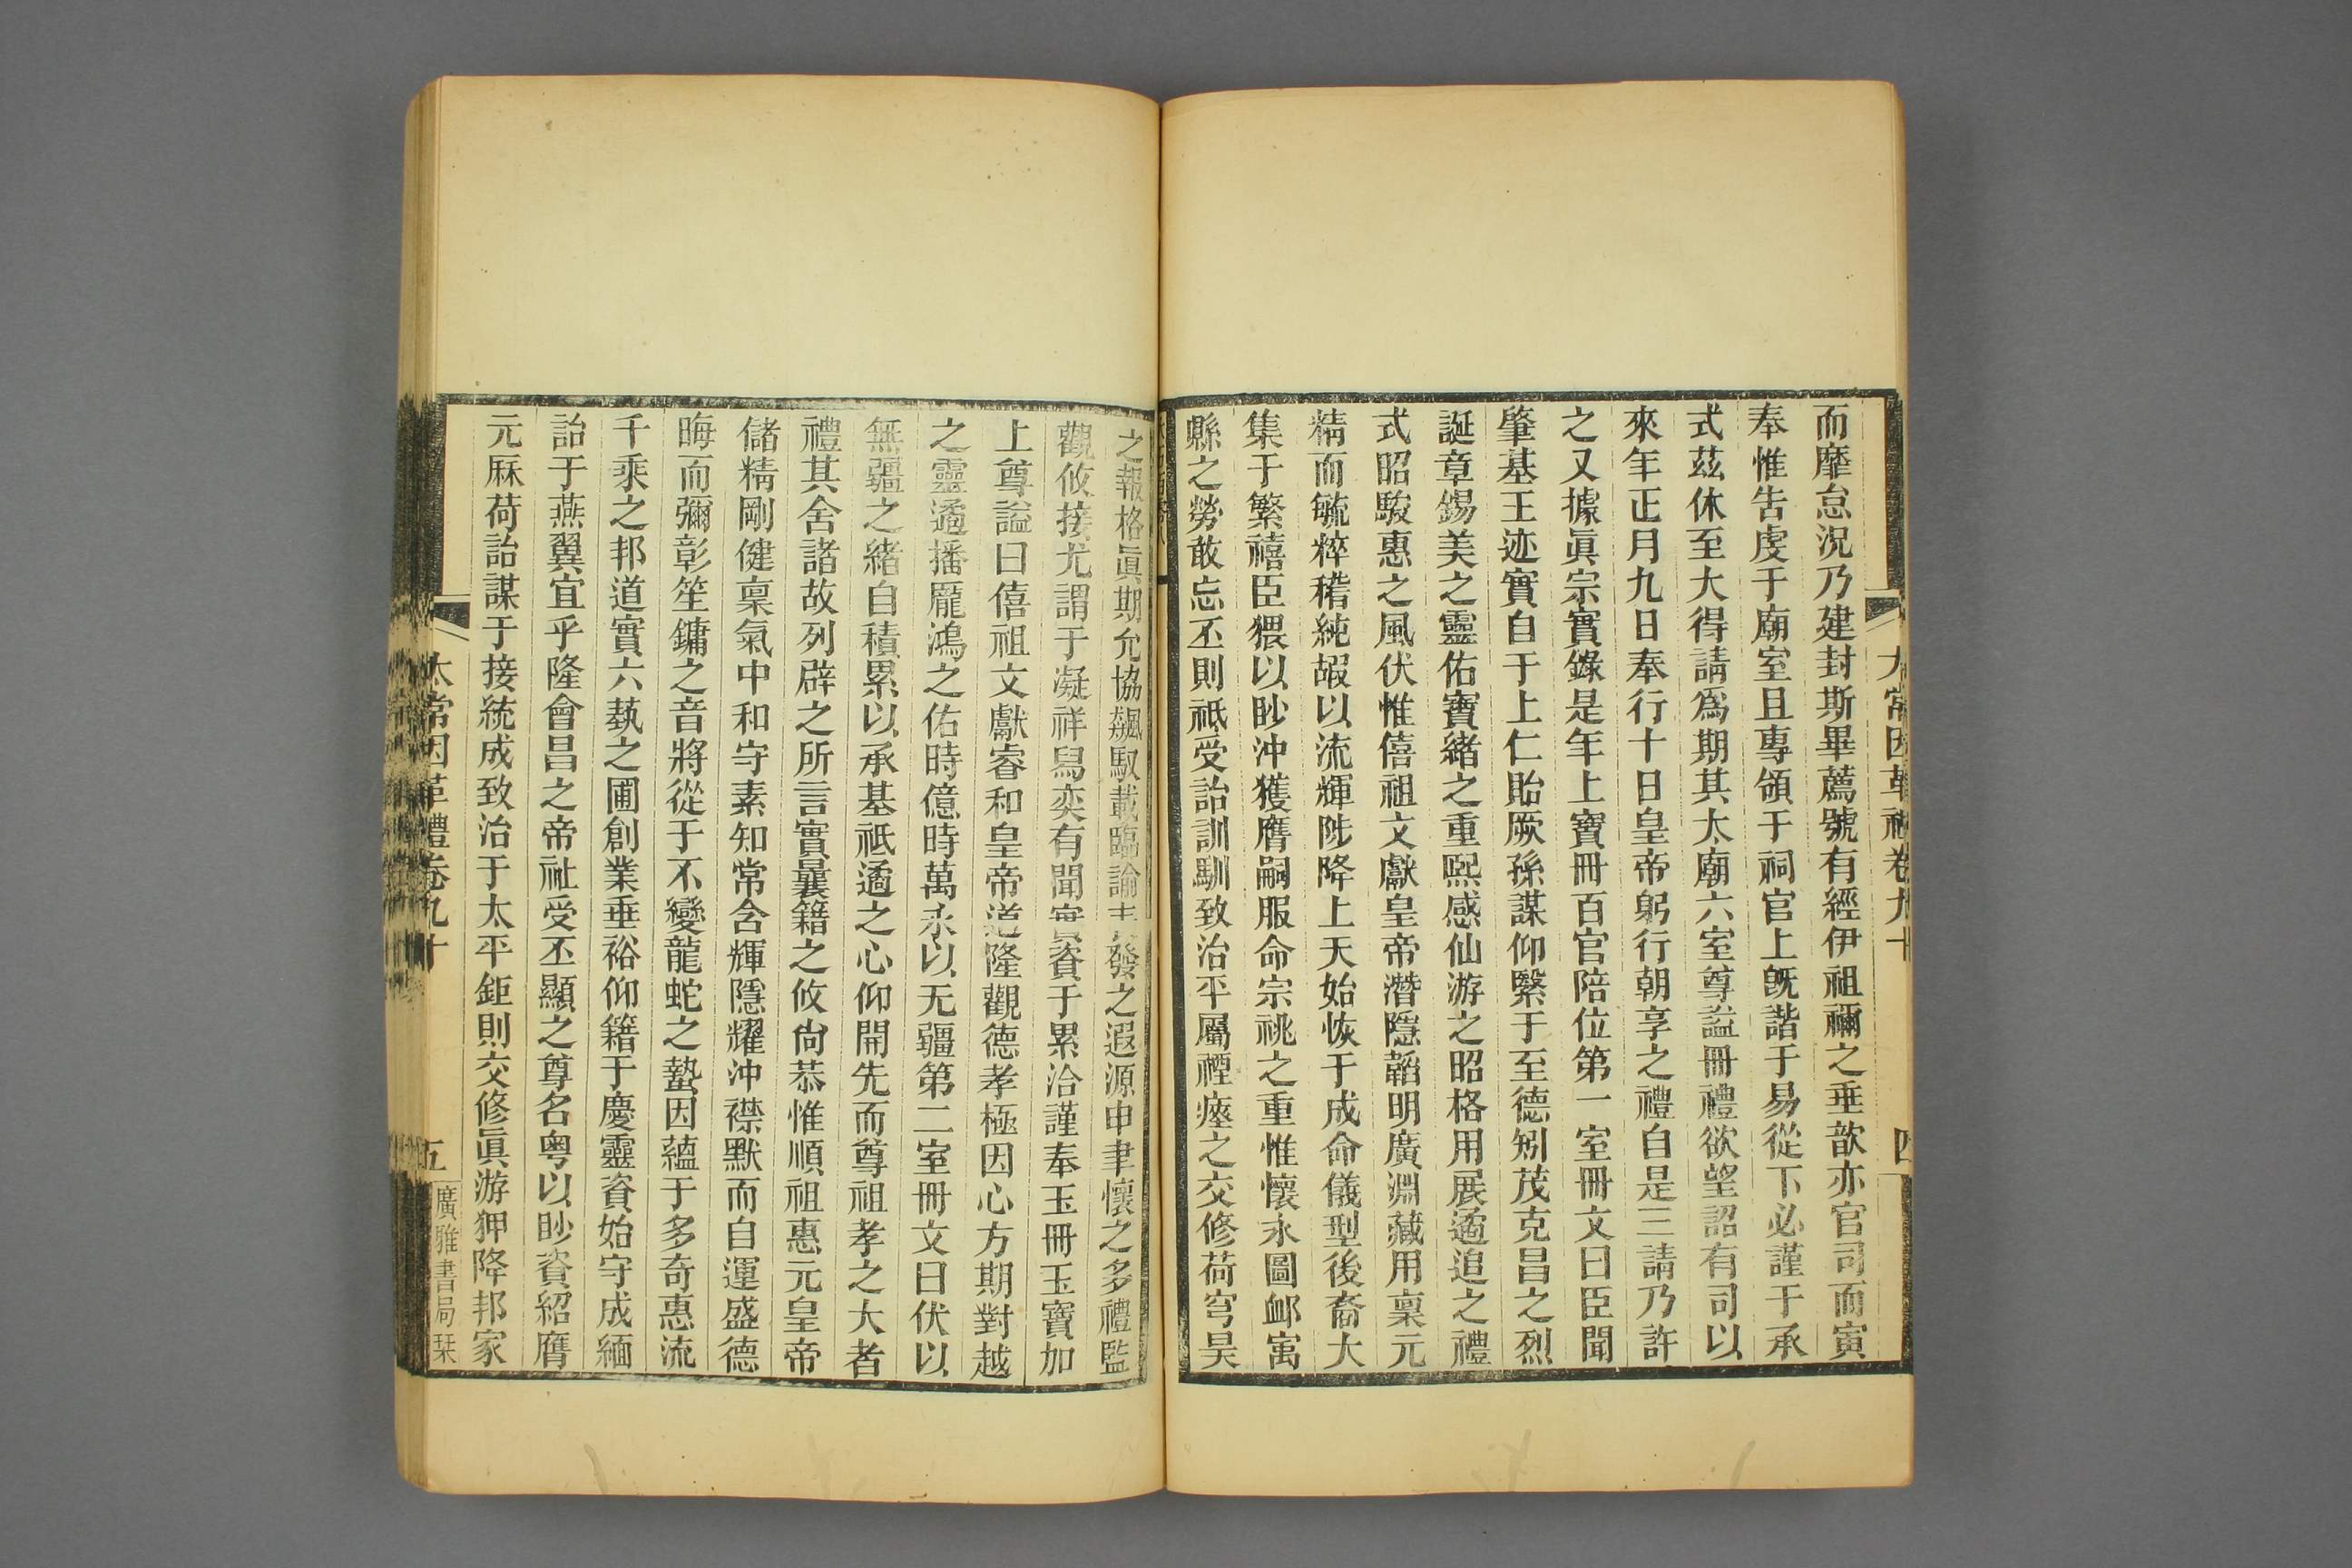 而靡怠況乃建封斯畢薦號有經伊祖禰之垂歆亦官司而寅
奉惟吿虔于廟室且專領于祠官上旣諧于易從下必謹于承
式茲休至大得請爲期其太廟六室尊謚冊禮欲望詔有司以
來年正月九日奉行十日皇帝躬行朝享之禮自是三請乃許
之又據眞宗實錄是年上寶冊百官陪位第一室冊文曰臣聞
肇基王迹實自于上仁貽厥孫謀仰繄于至德矧茂克昌之烈
誕章錫美之靈佑寶緒之重熙感仙游之昭格用展遹追之禮
式昭駿惠之風伏惟僖祖文獻皇帝潛隱韜明廣淵藏用稟元
精而毓粹稽純嘏以流輝陟降上天始恢于成命儀型後裔大
集于繁禧臣猥以眇沖獲膺嗣服命宗祧之重惟懷永圖卹寓
縣之勞敢忘丕則祗受詒訓馴致治平屬禋瘞之交修荷穹昊
太常因革禮卷九十
四
之報格眞期允協飆馭載臨諭 發之遐源申聿懷之多禮監
觀攸接尤謂于凝祥舄奕有聞實資于累洽謹奉玉冊玉寶加
上尊謚曰僖祖文獻睿和皇帝道隆觀德孝極因心方期對越
之靈遹播龐鴻之佑時億時萬永以无疆第二室冊文曰伏以
無疆之緒自積累以承基祗遹之心仰開先而尊祖孝之大者
禮其舍諸故列辟之所言實曩籍之攸尙恭惟順祖惠元皇帝
儲精剛健稟氣中和守素知常含輝隱耀沖襟默而自運盛德
晦而彌彰笙鏞之音將從于不變龍蛇之蟄因蘊于多奇惠流
千乘之邦道實六藝之圃創業垂裕仰籍于慶靈資始守成緬
詒于燕翼宜乎隆會昌之帝祉受丕顯之尊名粵以眇資紹膺
元庥荷詒謀于接統成致治于太平鉅則交修眞游狎降邦家
太常因革禮卷九十
五
廣雅書局栞